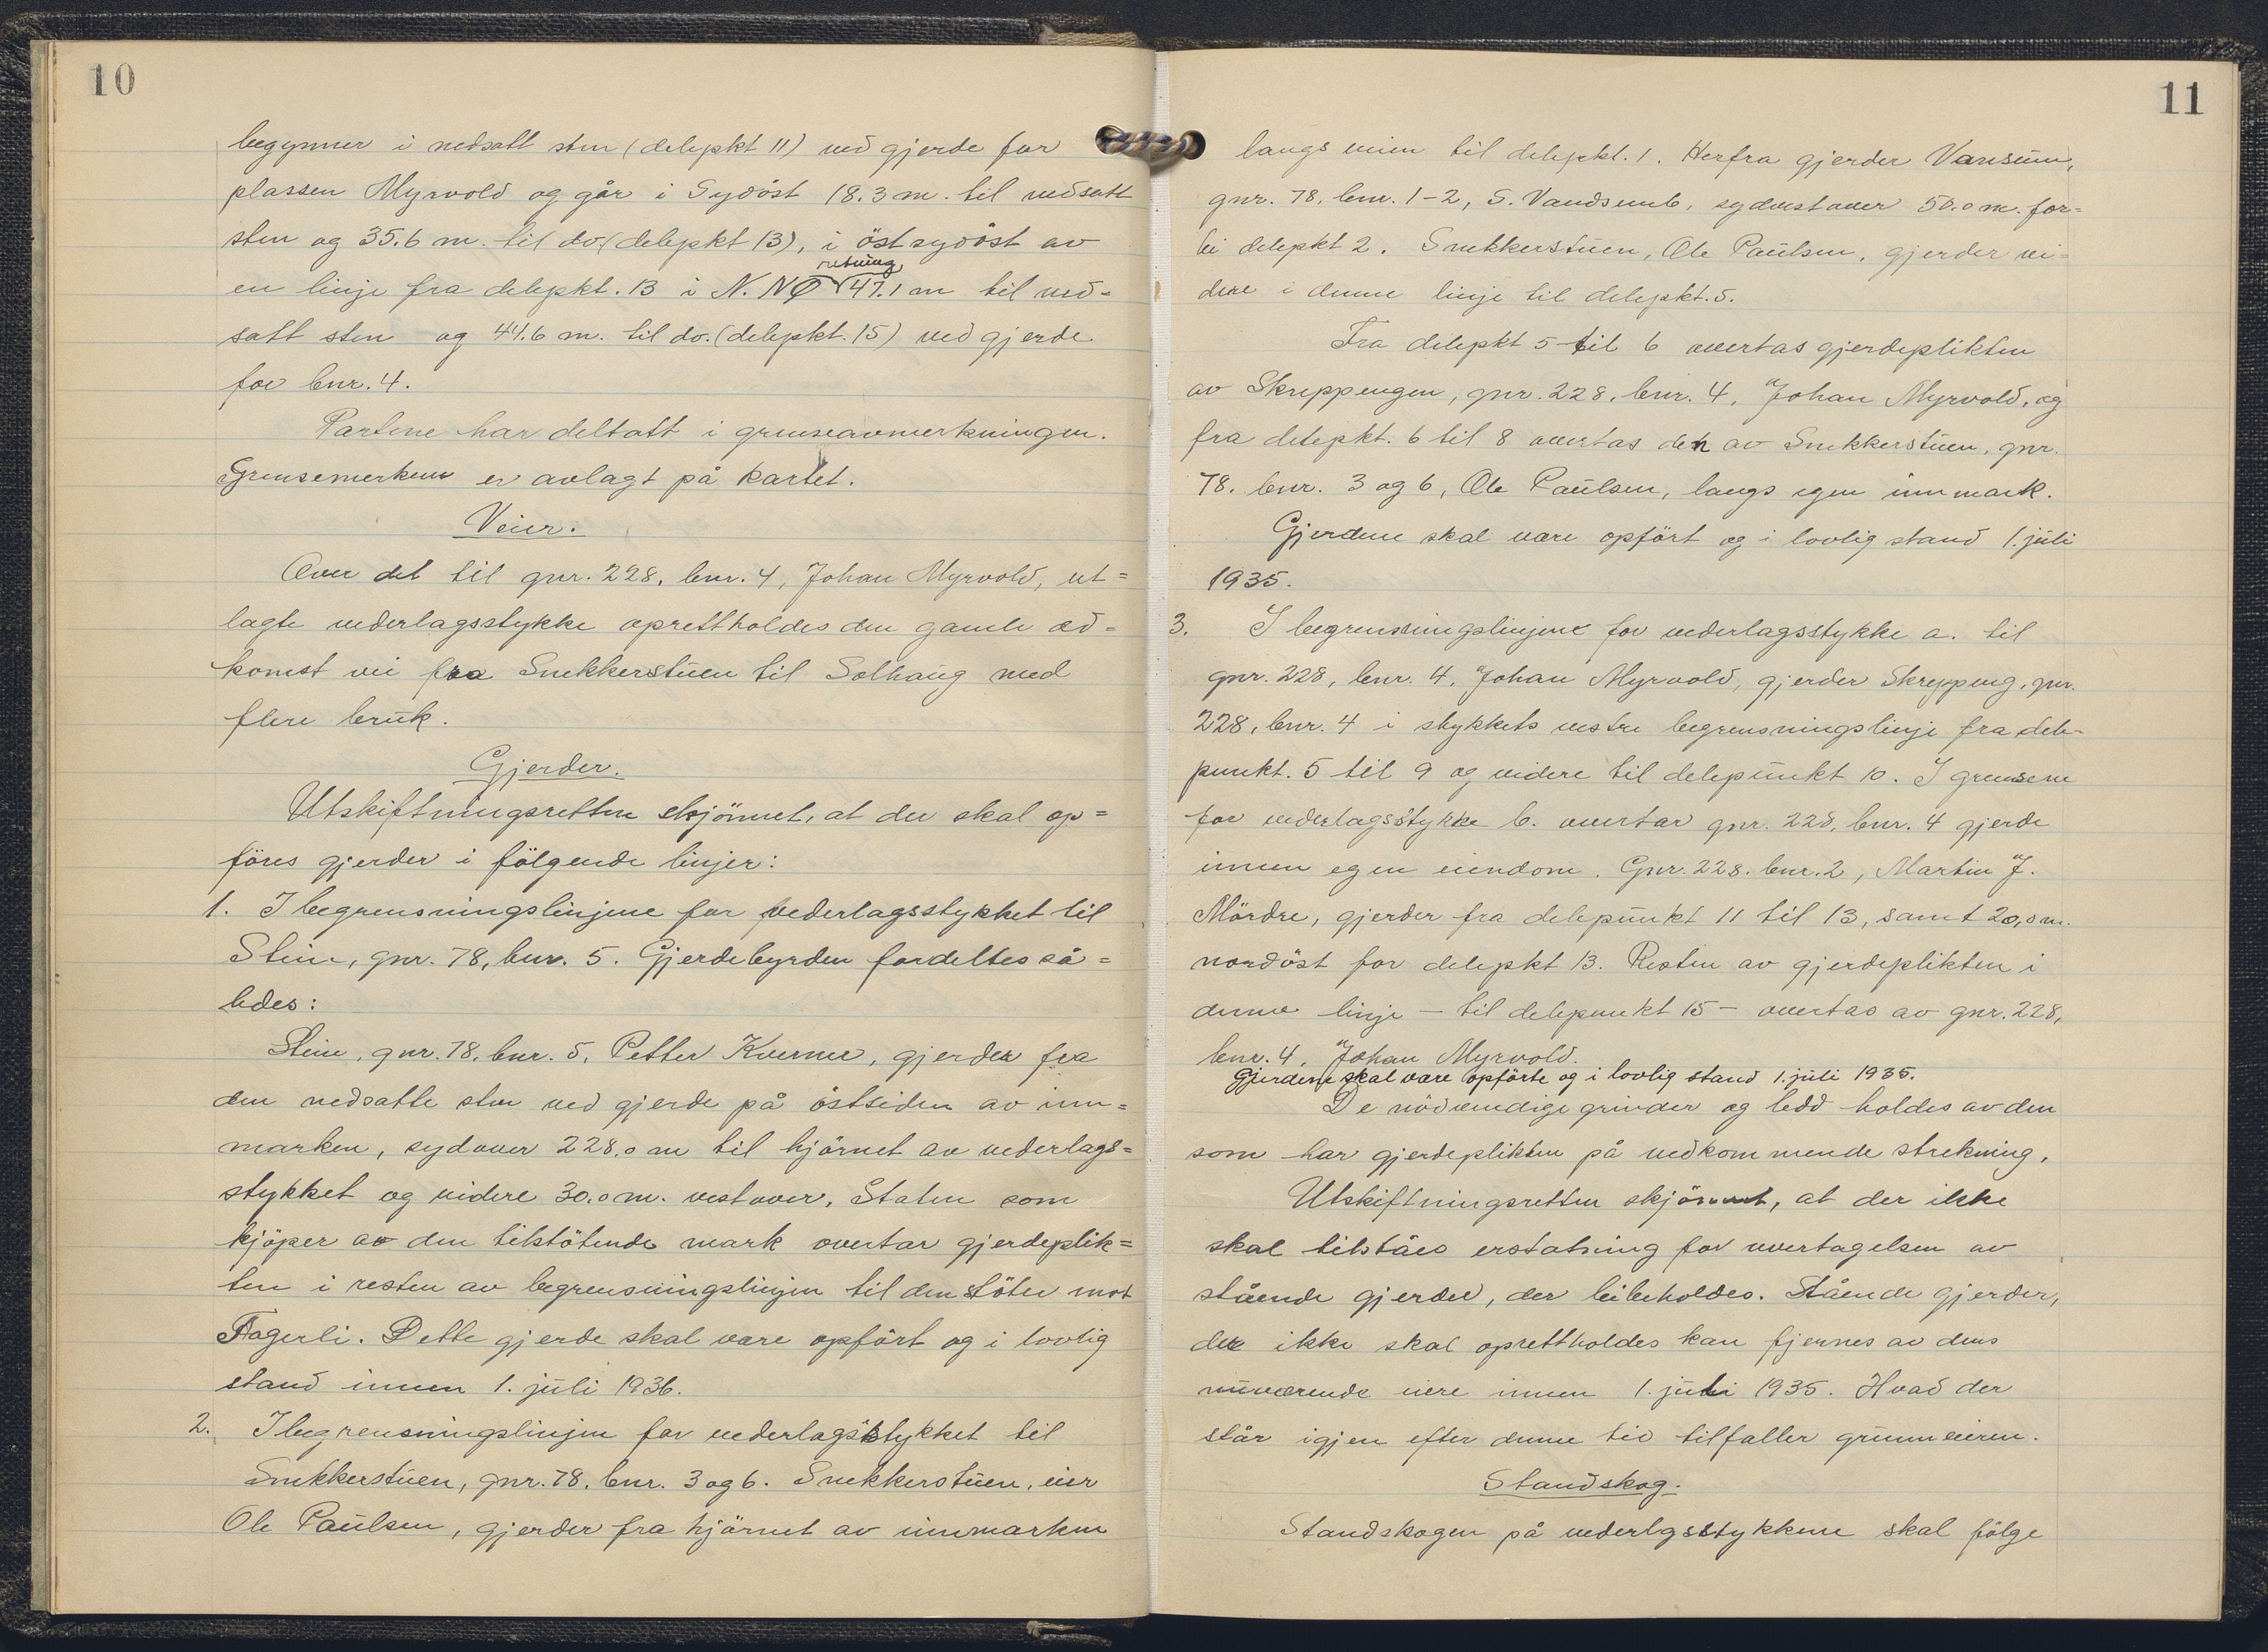 10
begynner i nedsatt sten (delepkt 11) ved gjerde for
plassen Myrvold og går i Sydöst 18.3 m. til nedsatt
sten og 35.6 m. til do (delepkt 13), i östsydöst av
retning
en linje fra delepkt. 13 i N. NØ 47.1 m til ned=
satt sten og 44.6 m. til do. (delepkt. 15) ved gjerde
for bnr. 4.
Partene har deltatt i grenseavmerkningen.
Grensemerkene er avlagt på kartet.
Veier.
Over det til gnr. 228, bnr. 4, Johan Myrvold, ut=
lagte vederlagsstykke oprettholdes den gamle ad=
komst vei fra Snekkerstuen til Solhaug med
flere bruk.
Gjerder.
Utskiftningsretten skjönnet, at der skal op=
föres gjerder i fölgende linjer:
1. I begrensningslinjene for vederlagsstykket til
Stein, gnr. 78, bnr. 5. Gjerdebyrden fordeltes så=
ledes:
Stein, gnr. 78, bnr. 5, Petter Kverner, gjerder fra
den nedsatte sten ved gjerde på östsiden av inn=
marken, sydover 228.0 m til hjörnet av vederlags=
stykket og videre 30.0 m. vestover. Staten som
kjöper av den tilstötende mark overtar gjerdeplik=
ten i resten av begrensningslinjen til den stöter mot
Fagerli. Dette gjerde skal være opfört og i lovlig
stand innen 1. juli 1936.
2. I begrensningslinjen for vederlagsstykket til
Snekkerstuen, gnr. 78, bnr. 3 og 6. Snekkerstuen, eier
Ole Paulsen, gjerder fra hjörnet av innmarken
11
langs veien til delepkt. 1. Herfra gjerder Vansum,
gnr. 78, bnr. 1-2, S. Vandsemb, sydvestover 50.0 m. for=
bi delepkt 2. Snekkerstuen, Ole Paulsen, gjerder vi=
dere i denne linje til delepkt. 5.
Fra delepkt 5 til 6 overtas gjerdeplikten
av Skreppengen, gnr. 228, bnr. 4, Johan Myrvold, og
fra delepkt. 6 til 8 overtas den av Snekkerstuen, gnr.
78, bnr. 3 og 6, Ole Paulsen, langs egen innmark.
Gjerdene skal være opfört og i lovlig stand 1. juli
1935.
3. I begrensningslinjene for vederlagsstykke a. til
gnr. 228, bnr. 4, Johan Myrvold, gjerder Skreppeng, gnr.
228, bnr. 4 i stykkets vestre begrensningslinje fra dele-
punkt. 5 til 9 og videre til delepunkt 10. I grensene
for vederlagsstykke b. overtar gnr. 228, bnr. 4 gjerde
innen egen eiendom. Gnr. 228. bnr. 2, Martin J.
Mördre, gjerder fra delepunkt 11 til 13, samt 20,0 m.
nordöst for delepkt 13. Resten av gjerdeplikten i
denne linje - til delepunkt 15 - overtas av gnr. 228,
bnr. 4, Johan Myrvold.
Gjerdene skal være opförte og i lovlig stand 1. juli 1935.
De nödvendige grinder og ledd holdes av den
som har gjerdeplikten på vedkommende strekning.
Utskiftningsretten skjönnet, at der ikke
skal tilståes erstatning for overtagelsen av
stående gjerder, der bibeholdes. Stående gjerder,
der ikke skal oprettholdes kan fjernes av dens
nuværende eiere innen 1. juli 1935. Hvad der
står igjen efter denne tid tilfaller grunneieren.
Standskog.
Standskogen på vederlgsstykkene skal fölge